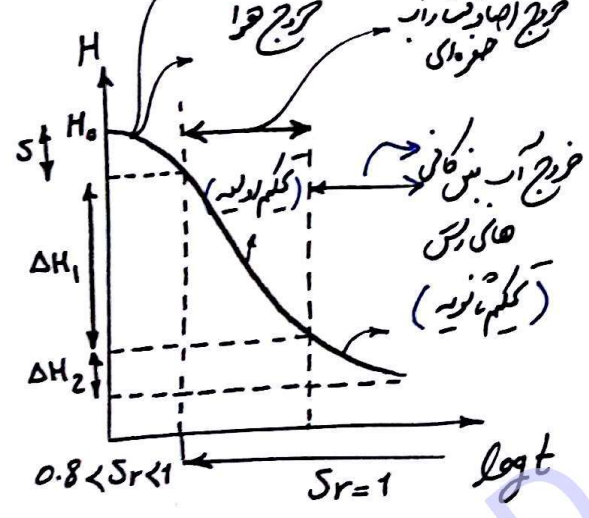 خروج هوا
خروج اضافه فشار آب
حفره‌ای
H
H₀
S
(تحکیم اولیه)
خروج آب بین کانی
های رس
(تحکیم ثانویه)
ΔH₁
ΔH₂
0.8<Sr<1
Sr=1
log t